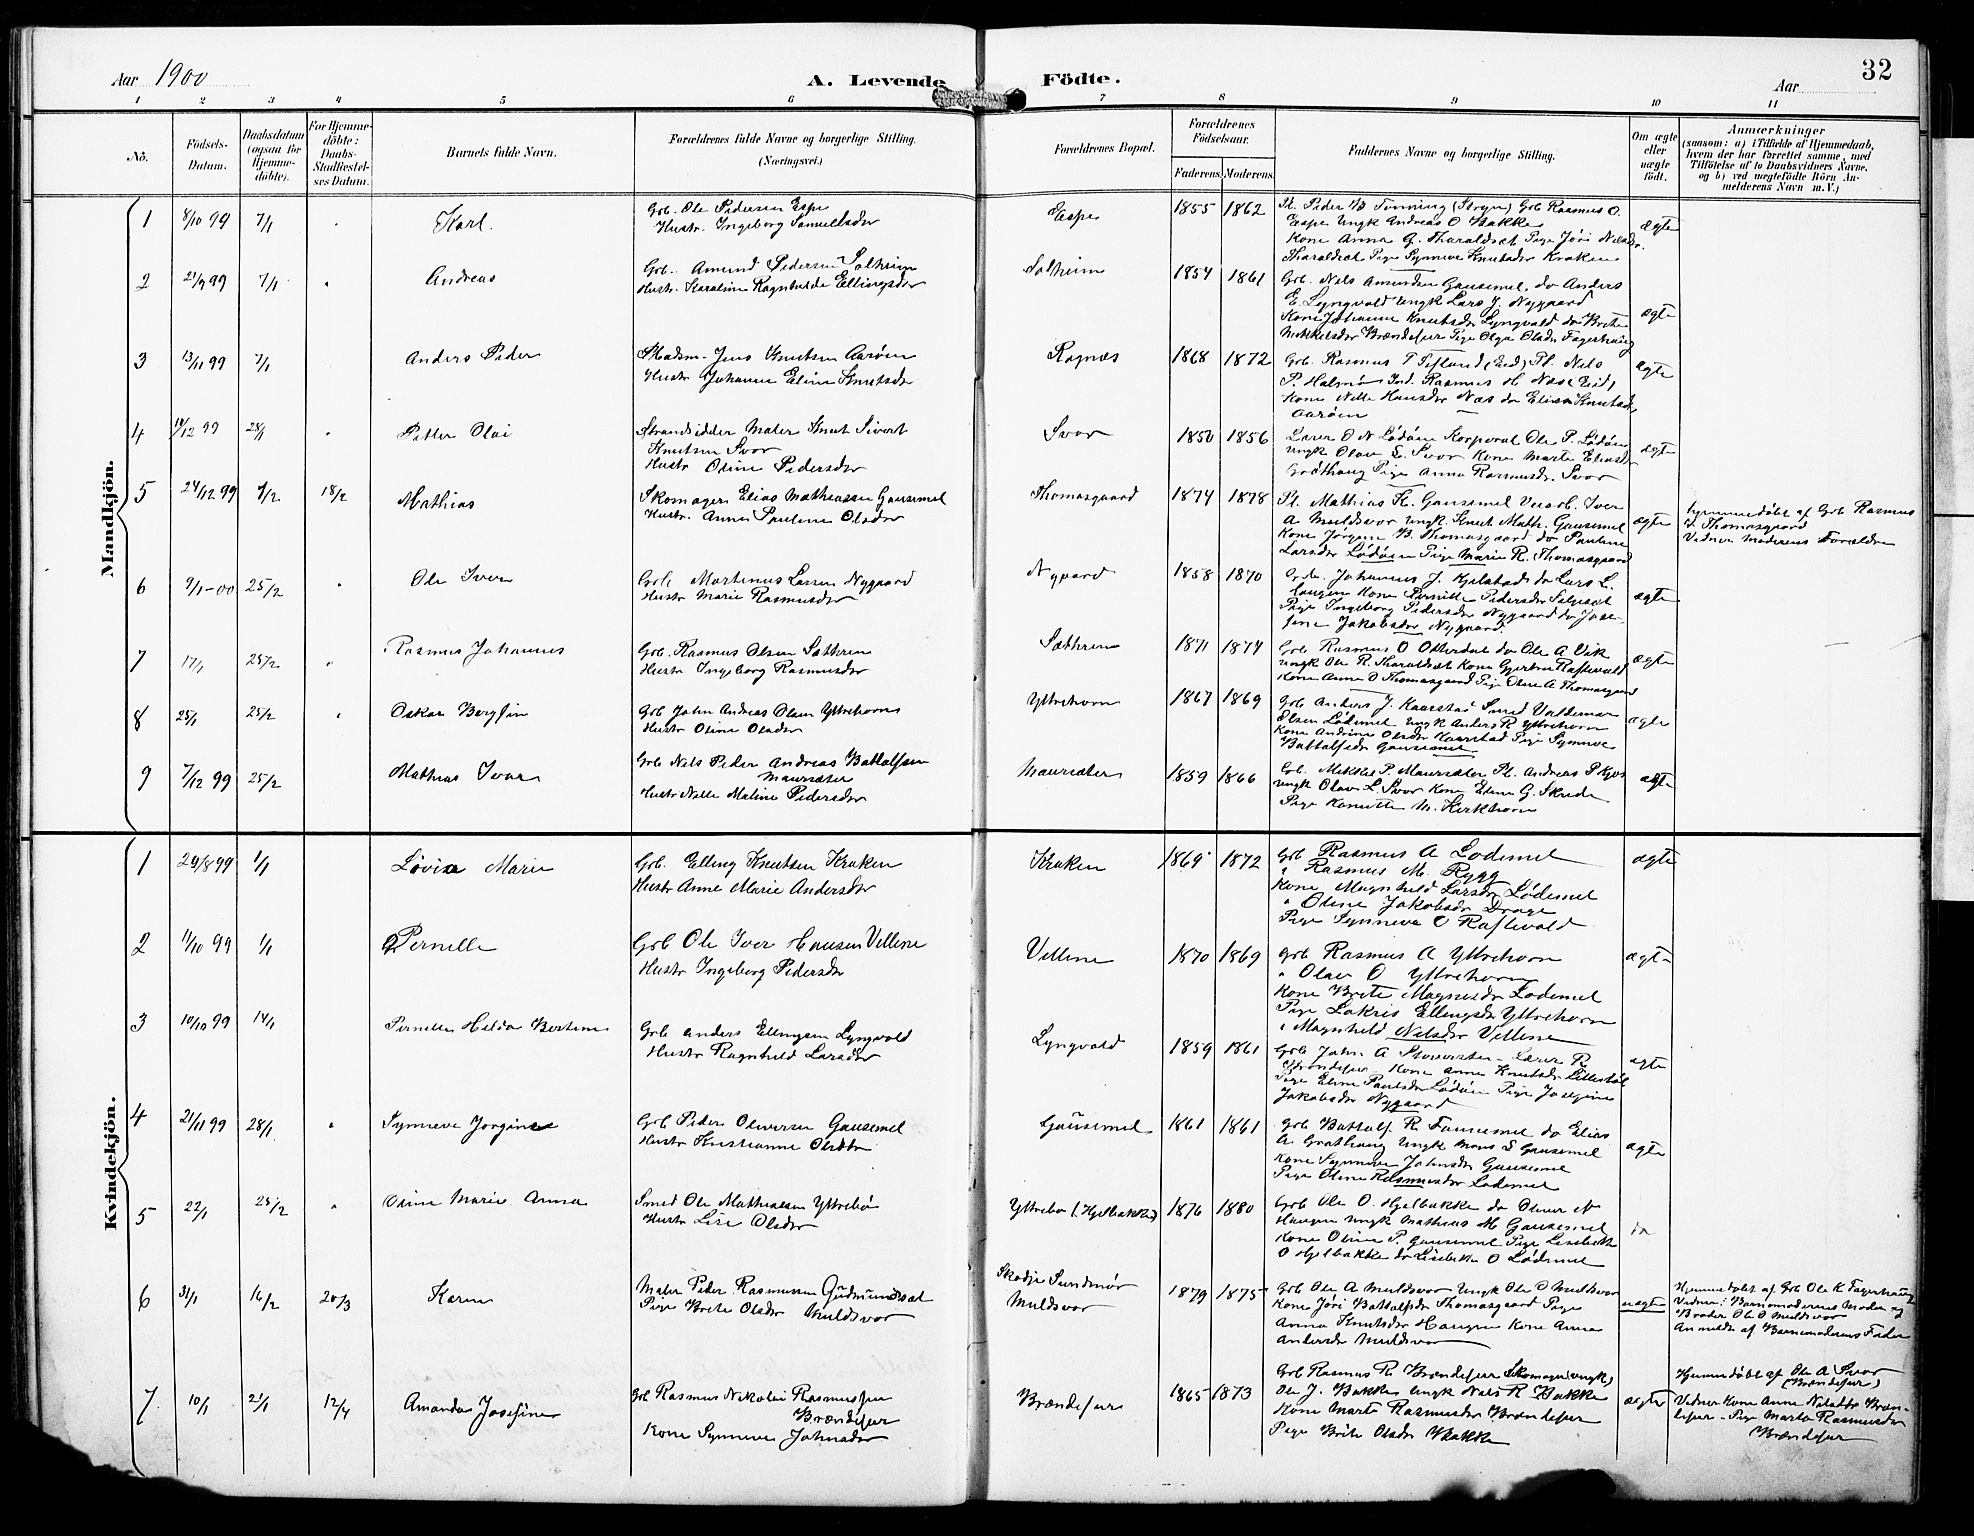 Aar 1900
A. Levende Födte.
Aar
32
1 2 3 4 5 6 7 8 9 10 11
No.
Födsels-Datum.
Daabsdatum (ogsaa for Hjemme-döbte).
For Hjemme-döbte: Daabs-Stadfæstel-ses Datum.
Barnets fulde Navn.
Forældrenes fulde Navne og borgerlige Stilling. (Næringsvei.)
Forældrenes Bopæl.
Forældrenes Födselsaar.
Faderens. Moderens.
Faddernes Navne og borgerlige Stilling.
Om ægte eller uægte födt.
Anmærkninger
(saasom: a) i Tilfælde af Hjemmedaab, hvem der har forrettet samme, med Tilföielse af to Daabsvidners Navne, og b) ved uægtefödte Börn An-melderens Navn m. V.)
Mandkjön.
1 8/10 99 7/1 Karl. Grb. Ole Pedersen Espe
Hustr. Ingeborg Samuelsdr
Espe 1855 1862 Rasmus O.
Espe Ungk Andreas O Bakke
Kone Anna G. Tharaldsæt Pige Jöri Nilsdr
Tharaldsæt Pige Synneve Knutsdr Kraken
ægte
2 21/9 99 7/1 Andreas Grb. Amund Pedersen Solheim
Hustr. Karoline Ragnhilde Ellingsdr
Solheim 1854 1861 Grb. Nils Amundsen Gausemel, do Anders
E. Lyngvald Ungk Lars J. Nygaard
Kone Johanne Knutsdr Lyngvald do Brite
Mikkelsdr Brændefur Pige Olga Olsdr Fagerhaug
ægte
3 13/11 99 7/1 Anders Peder Jens Knutsen Aaröen
Hustr Johanne Eline Knutsdr
Rognæs 1868 1872 Grb. Rasmus T (Eid) Pl. Nils
P. Rasmus H. Næs (Eid)
Kone Nille Hansdr Næs do Elise Knutsdr
Aaröen
ægte
4 14/12 99 28/1 Petter Olai Strandsidder Maler Knut Sivert
Knutsen Svor
Hustr Oline Pedersdr
Svor 1850 1856 Lærer O N Lödöen Korporal Ole P. Lödöen
Ungk Olav L. Svor Kone Marte Eliasdr
Grodthaug Pige Anna Rasmusdr Svor
ægte
5 24/12 99 4/2 18/2 Mathias Skomager Elias Mathiassen Gausemel
Hustr. Anne Pauline Olsdr
Thomasgaard 1874 1878 Pl. Mathias K. Gausemel Iver
A Muldsvor Ungk. Knut Math. Gausemel
Kone Jörgine B. Thomasgaard do Pauline
Larsdr Lödöen Pige Marie R. Thomasgaard
ægte
Hjemmedöbt af Grb Rasmus
Thomasgaard
Vidner Moderens Forældre
6 9/1-00 25/2 Ole Iver Grb Martinus Larsen Nygaard
Hustr Marie Rasmusdr
Nygaard 1858 1870 Johannes J. Hjelstad do Lars L.
Haugen Kone Pernille Pedersdr
Pige Ingeborg Pedersdr Nygaard do Jose-
fine Jakobsdr Nygaard.
ægte
7 17/1 25/2 Rasmus Johannes Grb. Rasmus Olsen Sæthren
Hustr Ingeborg Rasmusdr
Sæthren 1871 1874 Grb Rasmus O Otterdal do Ole A Vik
Ungk Ole R. Tharaldsæt Kone Gjertine Raftevold
Kone Anne O Thomasgaard Pige Oline A Thomasgaard
ægte
8 25/1 25/2 Oskar Bergfin Grb John Andreas Olsen Yttrehorn
Hustr Oline Olsdr
Yttrehorn 1867 1869 Grb Anders J. Kaarstad Smed Valdemar
Olsen Lödemel Ungk Anders R Yttrehorn
Kone Andrine Olsdr Kaarstad Pige Synneve
Battalfsdr Gausemel
ægte
9 7/12 99 25/2 Mathias Ivar Grb Nils Peder Andreas Battalfsen
Maursæter
Hustr Nille Maline Pedersdr
Maursæter 1859 1866 Grb. Mikkel P. Maursæter Pl. Andreas P Kjos
Ungk Olav L Svor Kone Eline G. Skrede
Pige Kanutte M. Kirkhorn
ægte
Kvindekjön.
1 29/8 99 1/1 Lövise Marie Grb. Elling Knutsen Kraken
Hustr Anne Marie Andersdr
Kraken 1865 1872 Grb Rasmus A Lödemel
" Rasmus M. Rygg
Kone Magnhild Larsdr Lödemel
" Oline Jakobsdr Drage
Pige Synneve O Raftevold
ægte
2 11/10 99 1/1 Pernille Grb Ole Iver Hansen Vellene
Hustr Ingeborg Pedersdr
Vellene 1870 1869 Grb Rasmus A Yttrehorn
" Olav O Yttrehorn
Kone Brite Magnusdr Lödemel
Pige Lakris Ellingsdr Yttrehorn
" Magnhild Nilsdr Vellene
ægte
3 10/10 99 14/1 Pernille Hilda Bertine Grb Anders Ellingsen Lyngvald
Hustr Ragnhild Larsdr
Lyngvald 1859 1861 Grb John A Lærer R
Brændefur Kone Anne Knutsdr
Pige Eline Paulsdr Lödöen Pige Josefine
Jakobsdr Nygaard
ægte
4 21/11 99 28/1 Synneve Jorgine Grb Peder Oliversen Gausemel
Hustr Kristianne Olsdtr
Gausemel 1861 1861 Grb Battalf. R. Fausemel do Elias
A Grothaug Ungk Mons L Gausemel
Kone Synneve Johnsdr Gausemel
Pige Oline Rasmusdr Lödemel
ægte
5 22/1 25/2 Oline Marie Anna Smed Ole Mathiasen Yttrebö
Hustr Lise Olsdr
Yttrebö (Hjelbakke) 1876 1880 Grb Ole O. Hjelbakke do Oliver N
Haugen Ungk Mathias M Gausemel
Kone Oline P. Gausemel Pige Lisebeth
O Hjelbakke do Lisebeth O Lödemel
6 31/1 16/2 20/3 Karen Maler Peder Rasmussen Gudmundsæt
Pige Brite Olsdr Muldsvor
Skodje Sundmör
Muldsvor
1879 1875 Grb Ole A Muldsvor Ungk Ole O Muldsvor
Kone Jöri Battalfsdr Thomasgaard Pige
Anna Knutsdr Haugen Kone Anna
Andersdr Muldsvor
uægte
Hjemmedöbt af Grb Ole K Fagerhaug
Vidner: Barnemoderens Moder og
Broder Ole O Muldsvor
Anmeldt af Barnemoderens Fader
7 10/1 21/1 12/4 Amanda Josefine Grb Rasmus Nikolai Rasmussen
Brændefur
Kone Synneve Johnsdr
Brændefur 1865 1873 Grb Rasmus R. Brændefur Skomager (ungk)
Ole J. Bakke Ungk Nils R Bakke
Kone Marte Rasmusdr Brændefur
Pige Brite Olsdr Bakke
ægte
Hjemmedöbt af Ole A Svor
(Brændefur)
Vidner Kone Anne Bræn-
defur - Pige Marta Rasmusdr
Brændefur